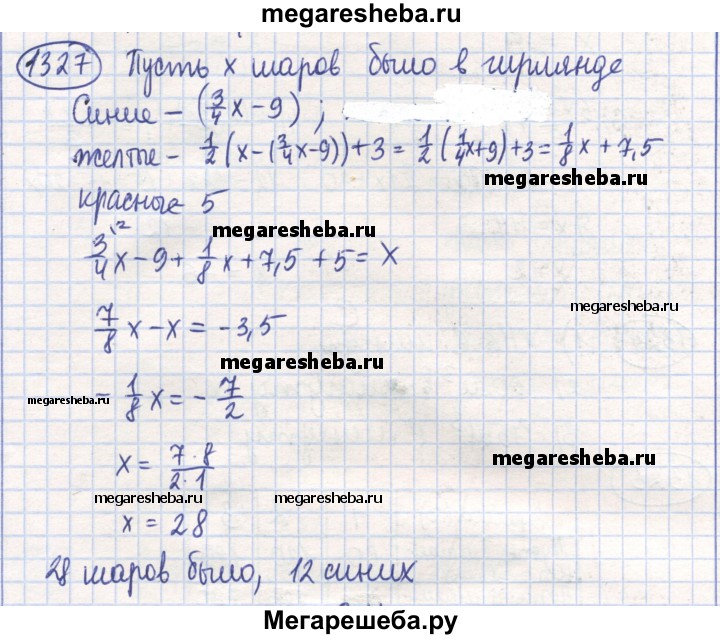 megaresheba.ru
1327 Пусть x шаров было в гирлянде
Синие – (3/4 x – 9) ;
желтые – 1/2 (x – (3/4 x – 9)) + 3 = 1/2 (1/4 x + 9) + 3 = 1/8 x + 7,5
megaresheba.ru
красные 5
megaresheba.ru
3/4 \2 x – 9 + 1/8 x + 7,5 + 5 = x
megaresheba.ru
7/8 x – x = – 3,5
megaresheba.ru
megaresheba.ru
– 1/8 x = – 7/2
x = 7·8/2·1
megaresheba.ru
megaresheba.ru megaresheba.ru
x = 28
28 шаров было, 12 синих
Мегарешеба.ру